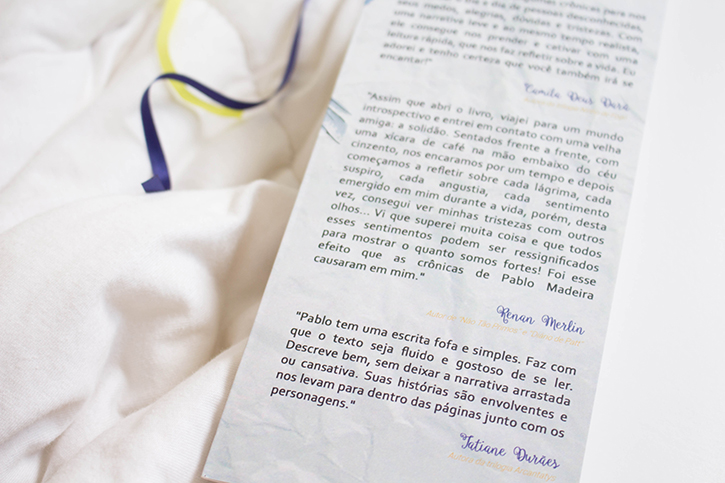 crônicas para nos
dia de pessoas desconhecidas,
seus medos, alegrias, dúvidas e tristezas. Com
uma narrativa leve e ao mesmo tempo realista,
ele consegue nos prender e cativar com uma
leitura rápida, que nos faz refletir sobre a vida. Eu
adorei e tenho certeza que você também irá se
encantar!"
Camila Deus Dará
"Assim que abri o livro, viajei para um mundo
introspectivo e entrei em contato com uma velha
amiga: a solidão. Sentados frente a frente, com
uma xícara de café na mão embaixo do céu
cinzento, nos encaramos por um tempo e depois
começamos a refletir sobre cada lágrima, cada
suspiro, cada angustia, cada sentimento
emergido em mim durante a vida, porém, desta
vez, consegui ver minhas tristezas com outros
olhos... Vi que superei muita coisa e que todos
esses sentimentos podem ser ressignificados
para mostrar o quanto somos fortes! Foi esse
efeito que as crônicas de Pablo Madeira
causaram em mim."
Renan Merlin
"Pablo tem uma escrita fofa e simples. Faz com
que o texto seja fluido e gostoso de se ler.
Descreve bem, sem deixar a narrativa arrastada
ou cansativa. Suas histórias são envolventes e
nos levam para dentro das páginas junto com os
personagens."
Tatiane Durães